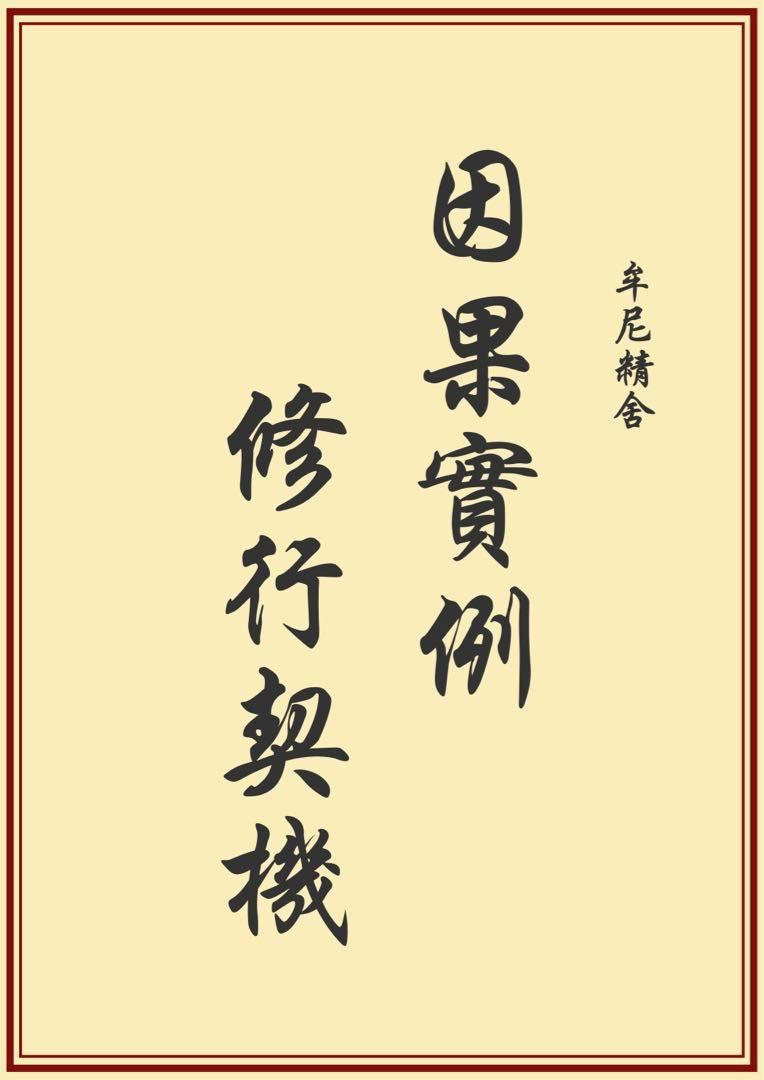 牟尼精舍
因果實例
修行契機